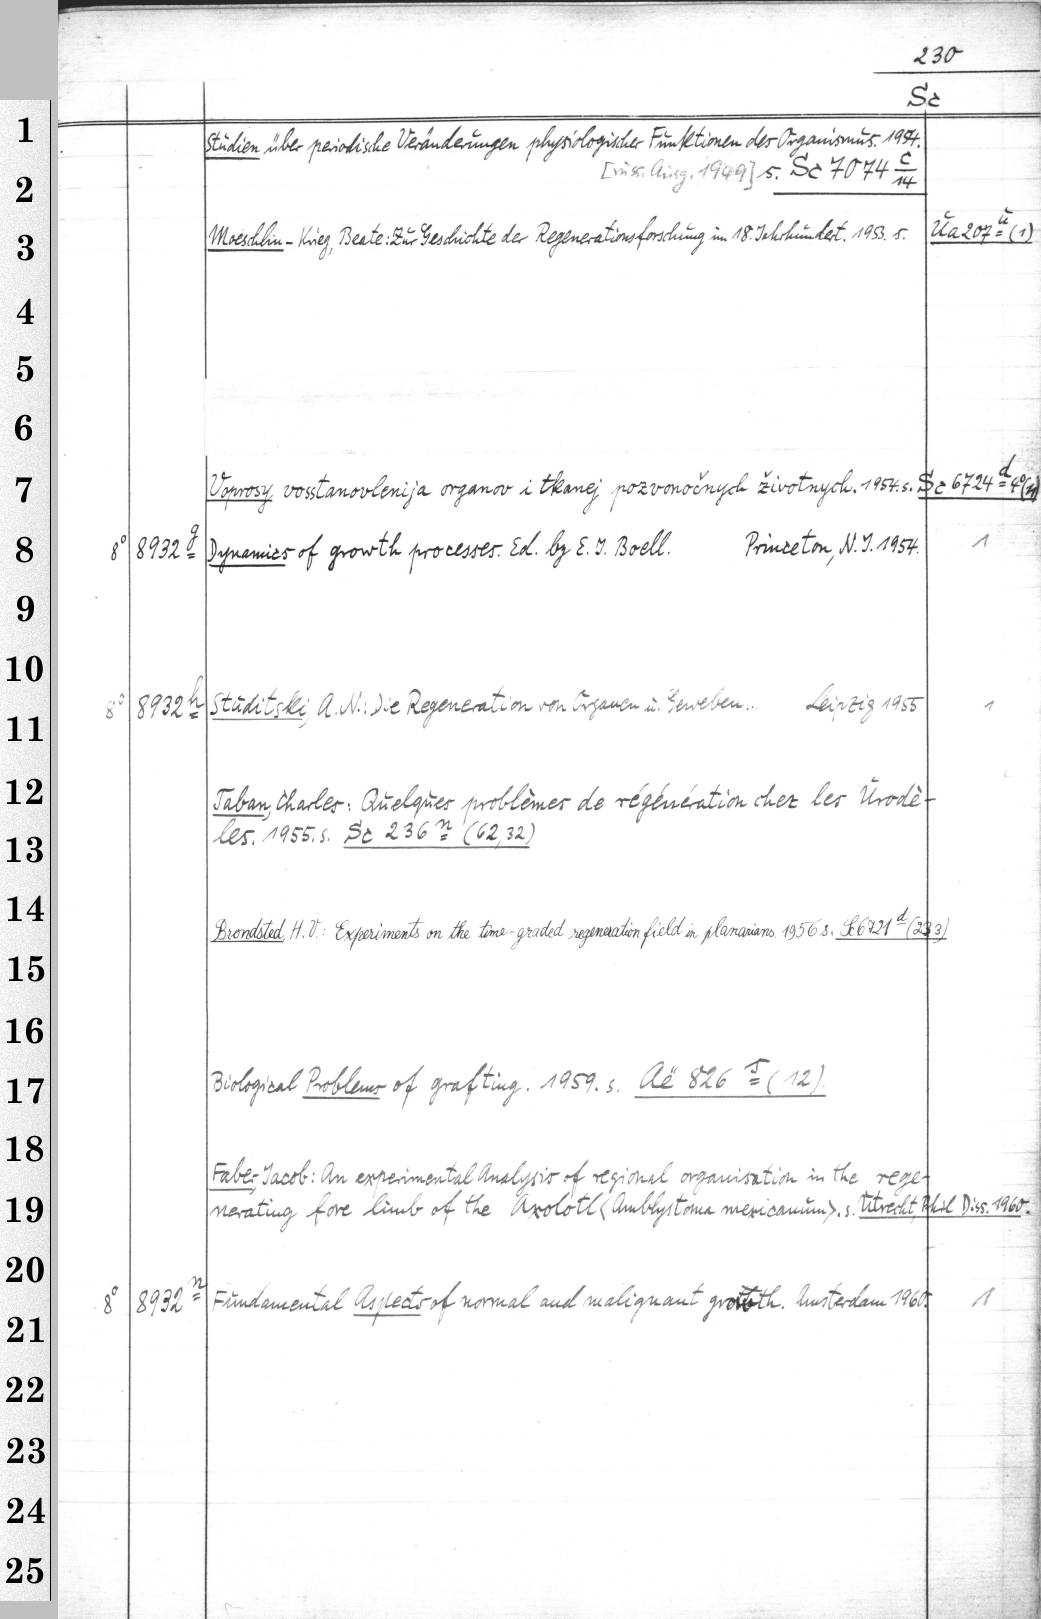 230
Sc
1
Studien über periodische Veränderungen physiologischer Funktionen des Organismus. 1954.
2
[russ. Ausg. 1949] s. Sc 7074 c/14
3
Moeschlin-Krieg, Beate: Zur Geschichte der Regenerationsforschung im 18. Jahrhundert. 1953. s. Ua 207 u (1)
4
5
6
7
Voprosy vosstanovlenija organov i tkanej pozvonočnych životnych. 1954. s. Sc 6724 d 4°
8
8° 8932 g Dynamics of growth processes. Ed. by E. J. Boell. Princeton, N.J. 1954. 1
9
10
11
8° 8932 h Studitski, A. N.: Die Regeneration von Organen u. Geweben... Leipzig 1955 1
12
Taban, Charles: Quelques problèmes de régénération chez les Urodè-
13
les. 1955. s. Sc 236 n (62,32)
14
Brøndsted, H.V.: Experiments on the time-graded regeneration field in planarians. 1956 s. Sc 6721 d (23,3)
15
16
17
Biological Problems of grafting. 1959. s. Aë 826 5 (12).
18
Faber, Jacob: An experimental Analysis of regional organisation in the rege-
19
nerating fore limb of the Axolotl <Amblystoma mexicanum>. s. Utrecht, Phil Diss. 1960.
20
8° 8932 n Fundamental Aspects of normal and malignant growth. Amsterdam 1960. 1
21
22
23
24
25